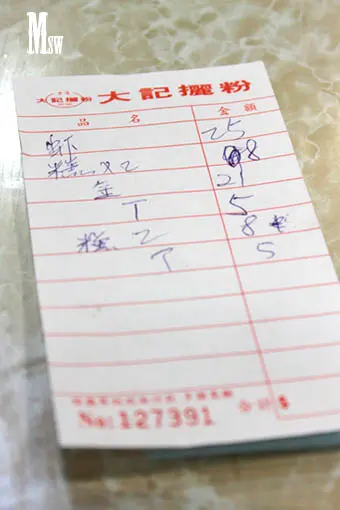 Msw
大記擺粉 大記擺粉
品名 金額
虾 25
糕 x2 8
金 21
丁 5
糕 2 8
丁 5
No: 127391 合計$